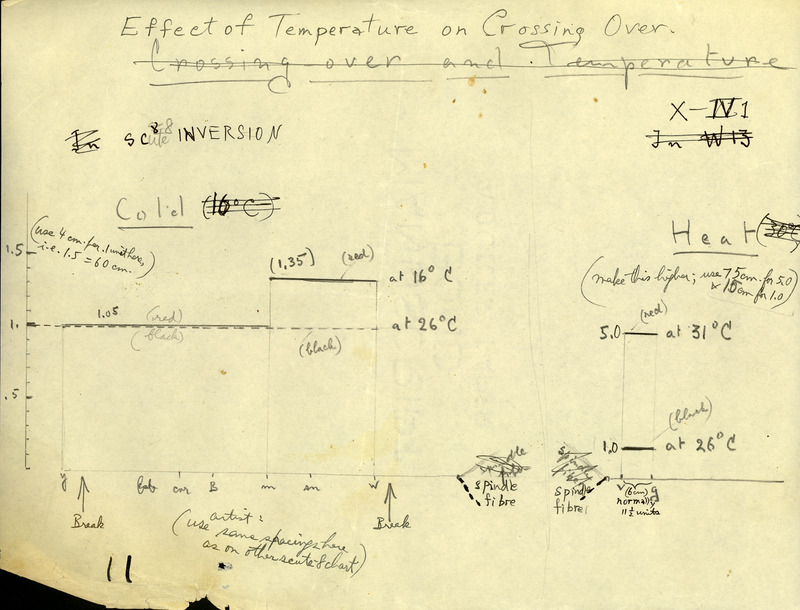 Effect of Temperature on Crossing Over.
Crossing over and Temperature
X-IV1
In W13
In sc8 INVERSION
Cold (16°C)
Heat (30°C)
(use 4 cm. for .1 unit here,
i.e. 1.5 = 60 cm.)
(make this higher; use 75 cm. for 5.0
& 15 cm for 1.0)
1.5
(1.35) (red) at 16°C
1.05 (red)
1. at 26°C
(black) (black)
.5
(red)
5.0 at 31°C
(black)
1.0 at 26°C
y bb cnr B m sn w
v (6cm) g
normally
11½ units
Break
Break
spindle
fibre
spindle
fibre
(artist:
use same spacings here
as on other scute-8 chart)
11